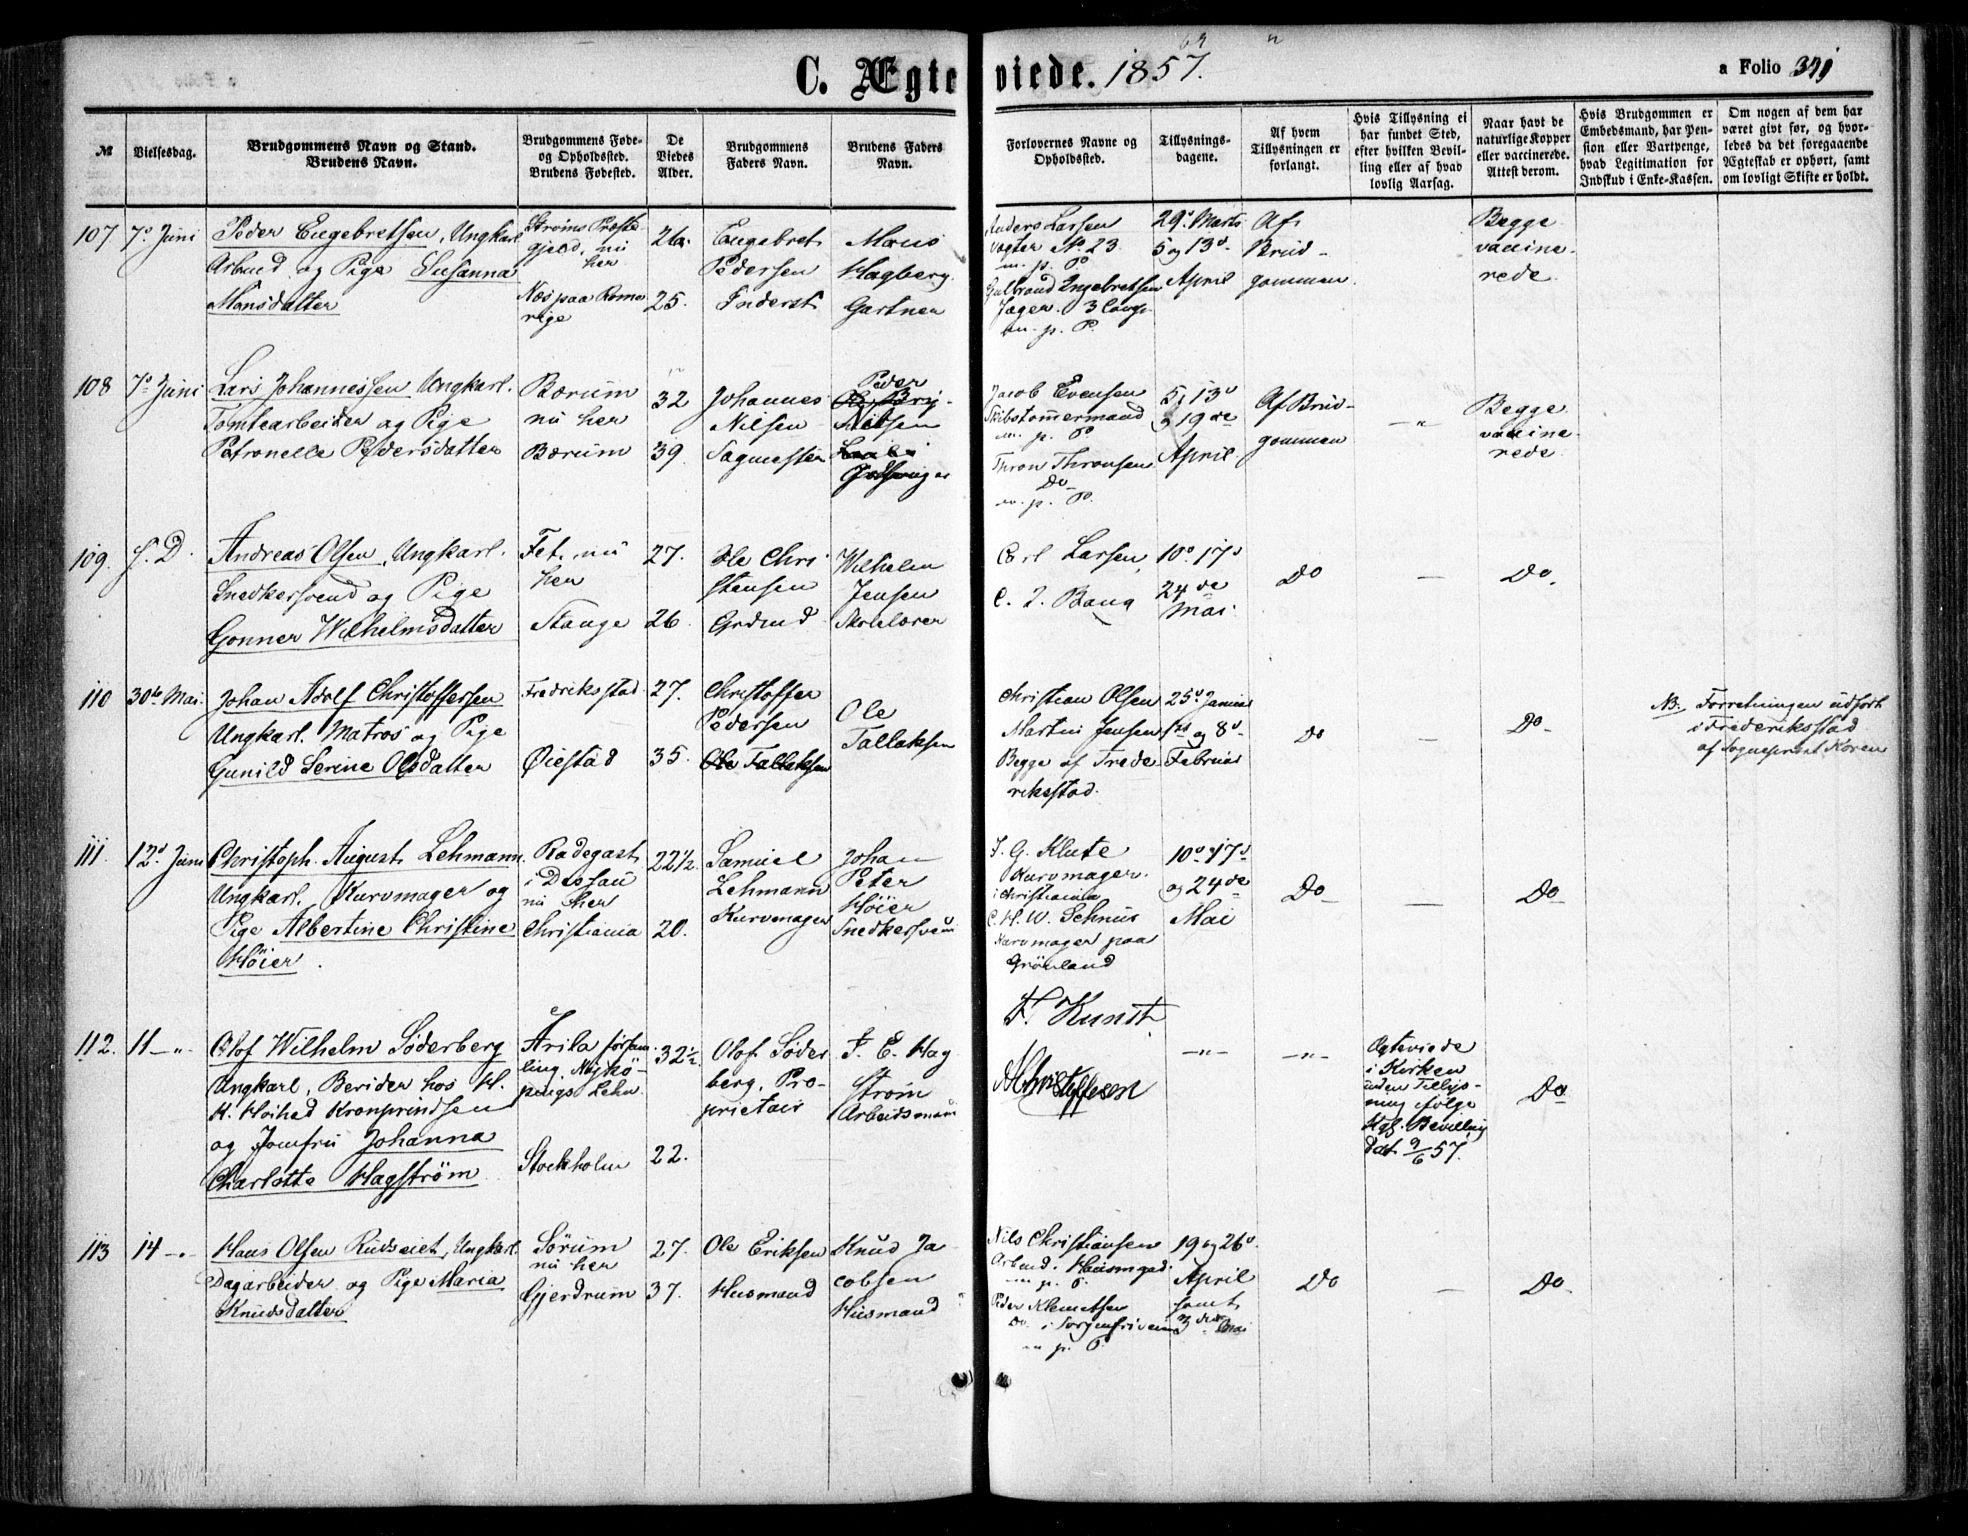 C. Ægteviede. 1857.
a Folio 391
№
Vielsesdag.
Brudgommens Navn og Stand.
Brudens Navn.
Brudgommens Føde-
og Opholdssted.
Brudens Fødested.
De
Viedes
Alder.
Brudgommens
Faders Navn.
Brudens Faders
Navn.
Forlovernes Navne og
Opholdssted.
Tillysnings-
dagene.
Af hvem
Tillysningen er
forlangt.
Hvis Tillysning ei
har fundet Sted,
efter hvilken Bevil-
ling eller af hvad
lovlig Aarsag.
Naar havt de
naturlige Kopper
eller vaccinerede.
Attest derom.
Hvis Brudgommen er
Embedsmand, har Pen-
sion eller Vartpenge,
hvad Legitimation for
Indskud i Enke-Kassen.
Om nogen af dem har
været givt før, og hvor-
ledes da det foregaaende
Ægteskab er ophørt, samt
om lovligt Skifte er holdt.
107
7de Juni
Peder Engebretsen, Ungkarl
Arbmd og Pige Susanna
Monsdatter
Strøms Præste
gjeld, nu
her
Næs paa Rome
rige
26
25.
Engebret
Pedersen
Inderst
Mons
Hagberg
Gartner
Anders Larsen
Vogter No. 23
m. p. P.
Gulbrand Ingebretsen
Jæger. 3 Comp.
m. p. P.
29d Marts
5 og 13d
April
Af
Brud-
gommen
Begge
vaccine-
rede
108
7de Juni
Lars Johannessen Ungkarl.
Tomtearbeider og Pige
Petronelle Pedersdatter
Bærum
nu her
Bærum
32
39
Johannes
Nilsen
Sagmester
Peder
Nilsen
Jacob Evensen
Skibstømmermand
m. p. P
Thron Thronsen
Do
m. p. P.
5, 13d
19de
April
Af Brud-
gommen
—"
Begge
vaccine-
rede
109.
s. D.
Andreas Olsen, Ungkarl.
Snedkersvend og Pige
Gonner Wilhelmsdatter
Fet, nu
her
Stange
27.
26.
Ole Chri
stensen
Grdmd
Wilhelm
Jensen
Skolelærer
Carl Larsen,
C. J. Bang
10d 17d
24de
Mai
Do
—
Do.
110
30te Mai.
Johan Adolf Christoffersen
Ungkarl. Matros og Pige
Gunild Serine Olsdatter
Fredriksstad
Øiestad
27.
35.
Christoffer
Pedersen
Ole Tallaksen
Ole
Tallaksen
Christian Olsen
Martin Jensen
Begge af Frede
riksstad.
25d Januar
1ste og 8d
Februar
Do
—
Do
NB. Forretningen udført
i Frederiksstad
af Sognepræst Koren
111.
12d Juni
Christoph August Lehmann
Ungkarl. Kurvmager og
Pige Albertine Christine
Høier.
Radegast
i Dessau
nu her
Christiania
22½.
20.
Samuel
Lehmann
Kurvmager
Johan
Peter
Høier
Snedkersvend
F. G. Klute
Kurvmager
i Christiania
C. H. W. Schnüs
Kurvmager paa
Grönland
10d 17d
og 24de
Mai
Do
—
Do
112.
11 —"—
Olof Wilhelm Söderberg
Ungkarl, Berider hos H.
K. Høihed Kronprindsen
og Jomfru Johanna
Charlotte Hagström
Ärila försam
ling, Nykö-
pings Lehn
Stockholm
32½
22.
Olof Söder
berg, Pro-
prietair
F. E. Hag
ström
Arbeidsmand
F. Kunst
A Christoffersen
—"—
—"—
Ægteviede
i Kirken
uden Tillys-
ning ifølge
Kgl. Bevilling
Dat 9/6 57.
Do
113
14 —"—
Hans Olsen Rudseiet, Ungkarl.
Dagarbeider og Pige Maria
Knudsdatter
Sørum
nu her
Gjerdrum
27.
37.
Ole Eriksen
Husmand
Knud Ja
cobsen
Husmand
Nils Christiansen
Arbmd.
m. p. P.
Peder Klemetsen
Do i Sorgenfriveien
m p. P.
19 og 26d
April
samt
3die Mai
Do
—
Do